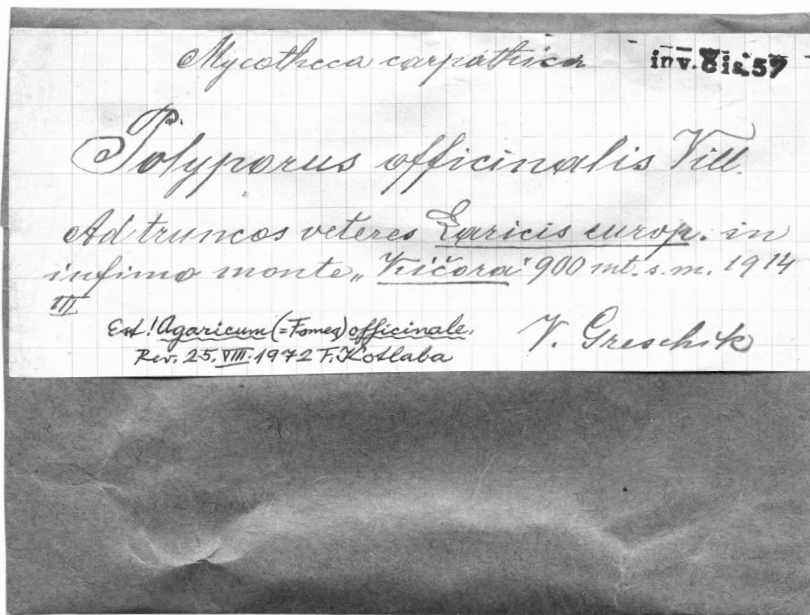 Mycotheca carpathica
inv. čis. 57
Polyporus officinalis Vill.
Ad truncos veteres Laricis europ. in
infimo monte „Kičora" 900 mt. s. m. 1914
III.
Est! Agaricum (=Fomes) officinale.
Rev. 25. VIII. 1972 F. Kotlaba
V. Greschik